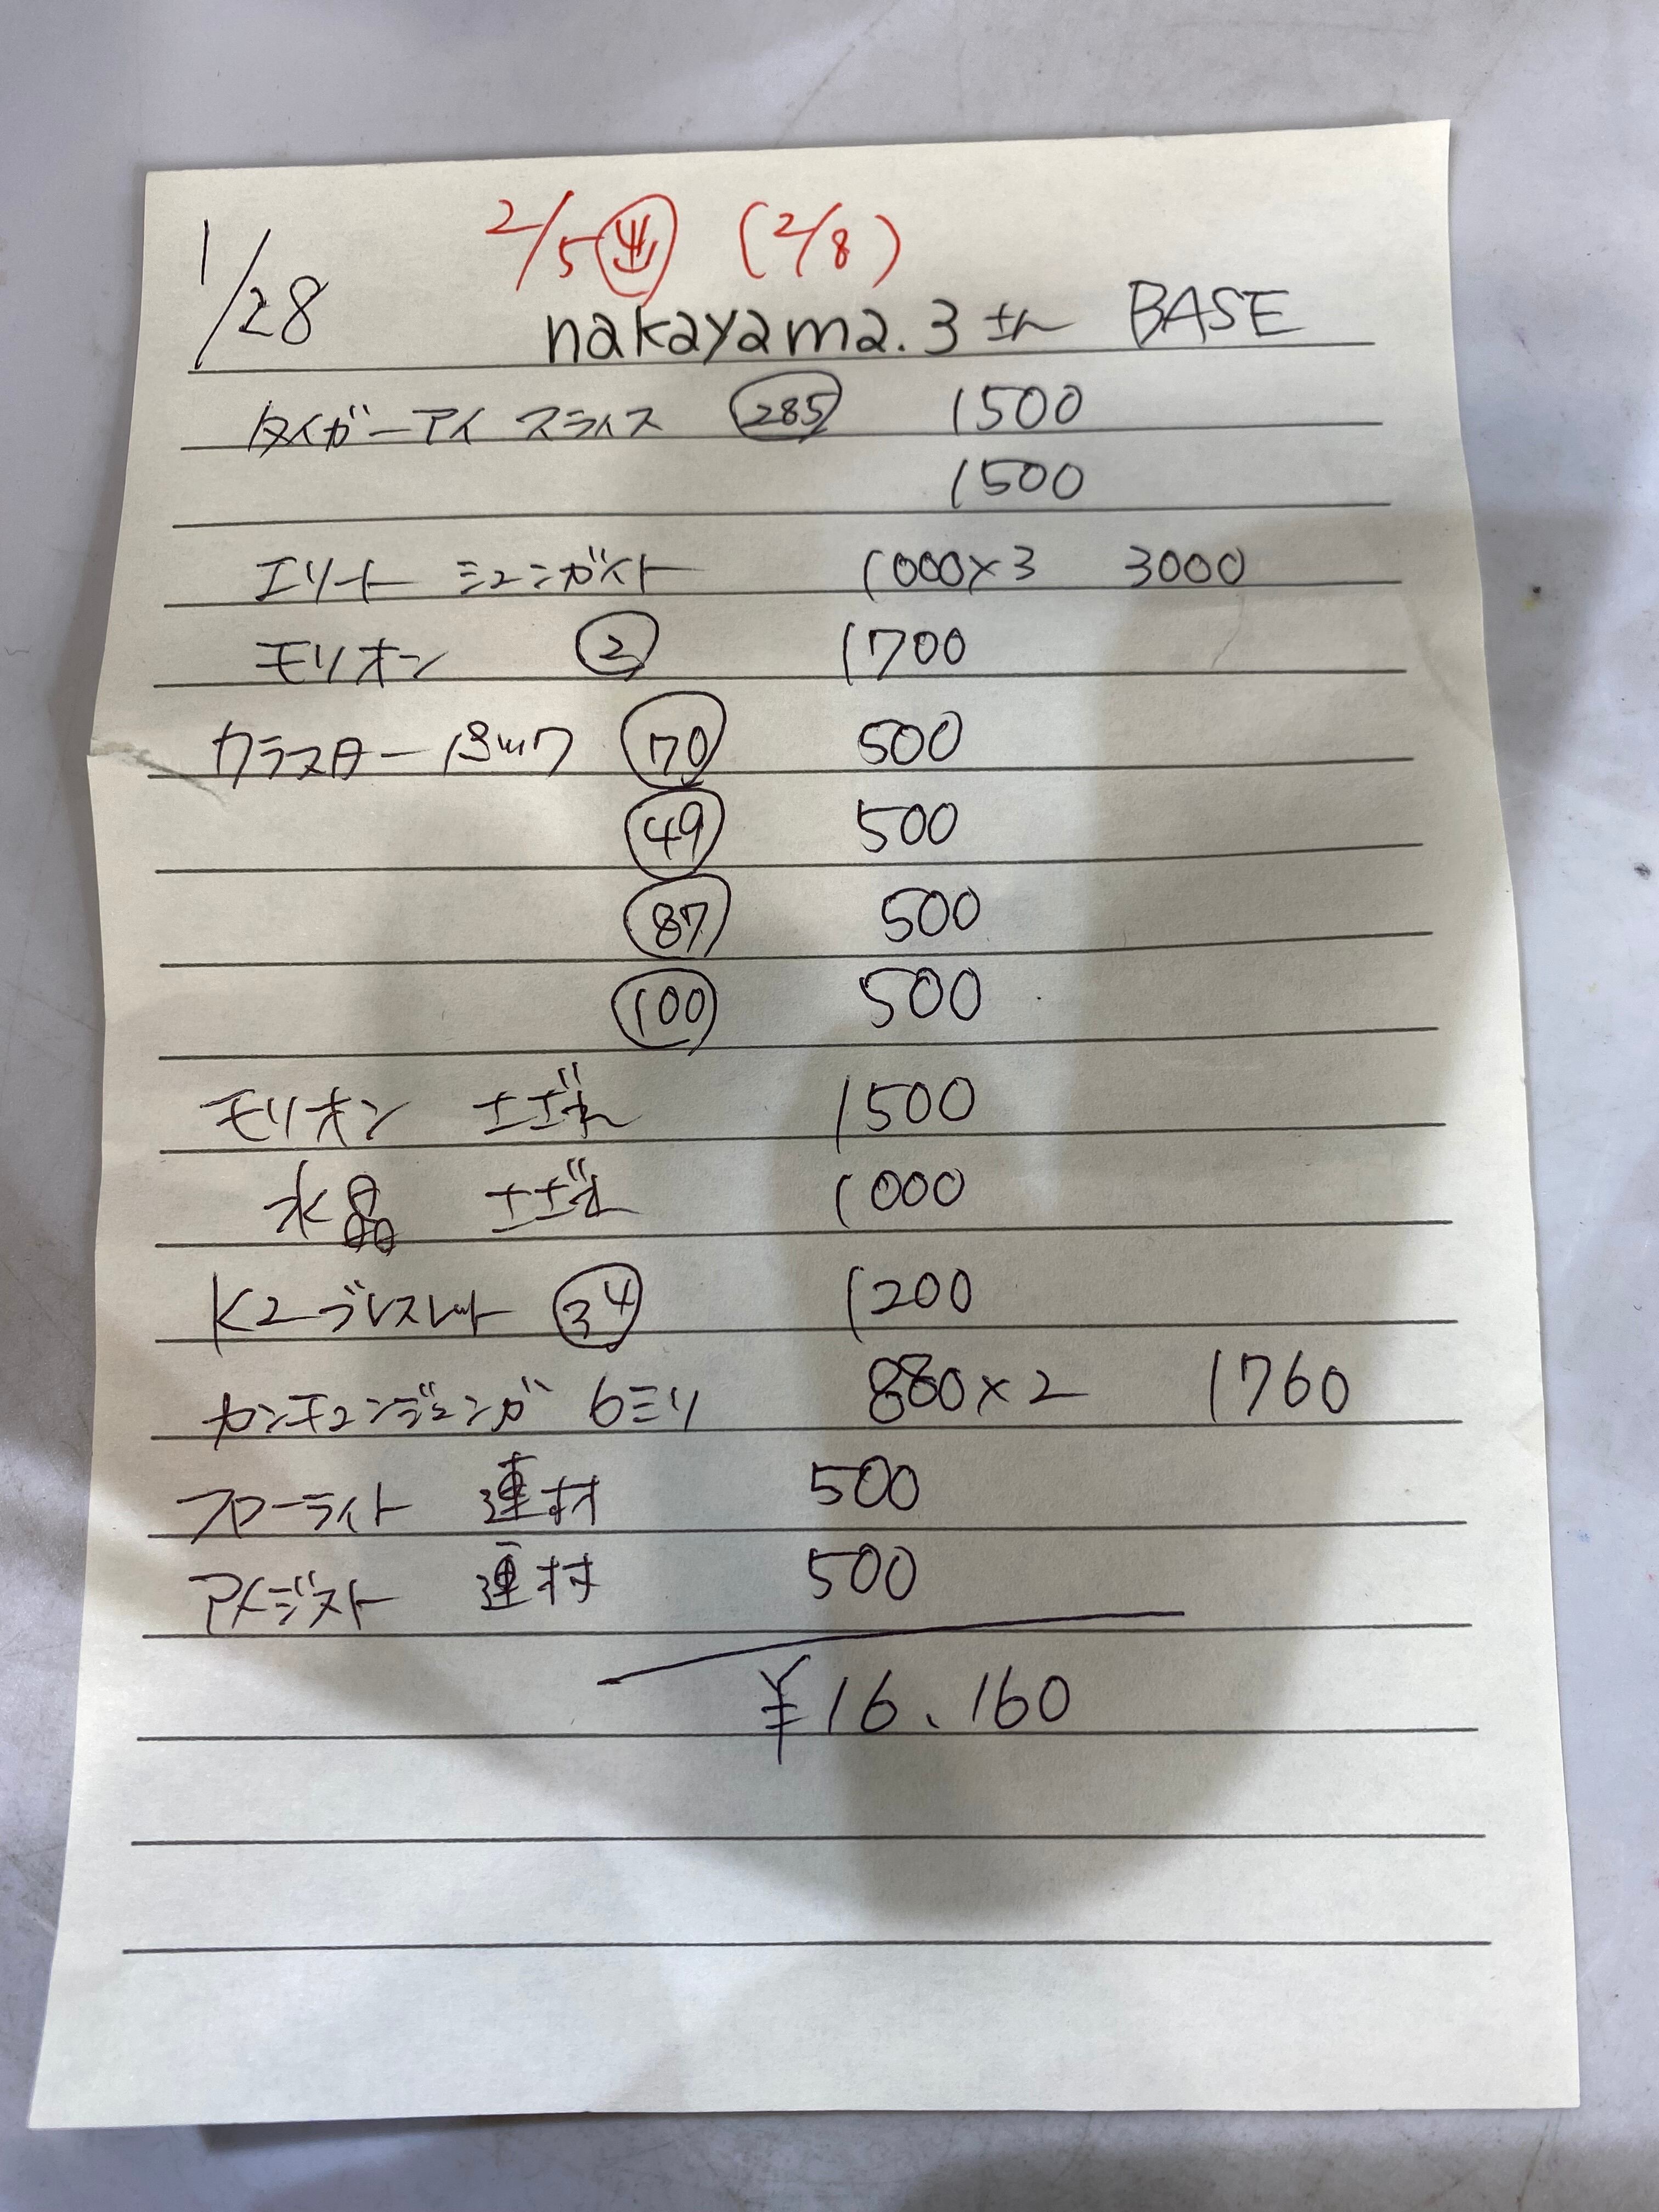 2/5 出 (2/8)
1/28 nakayama.3さん BASE
タイガーアイ スライス 285 1500
1500
エリート シュンガイト 1000×3 3000
モリオン 2 1700
クラスター パック 70 500
49 500
87 500
100 500
モリオン さざれ 1500
水晶 さざれ 1000
K2ブレスレット 34 1200
カンチェンジュンガ 6ミリ 880×2 1760
フローライト 連材 500
アメジスト 連材 500
¥16、160